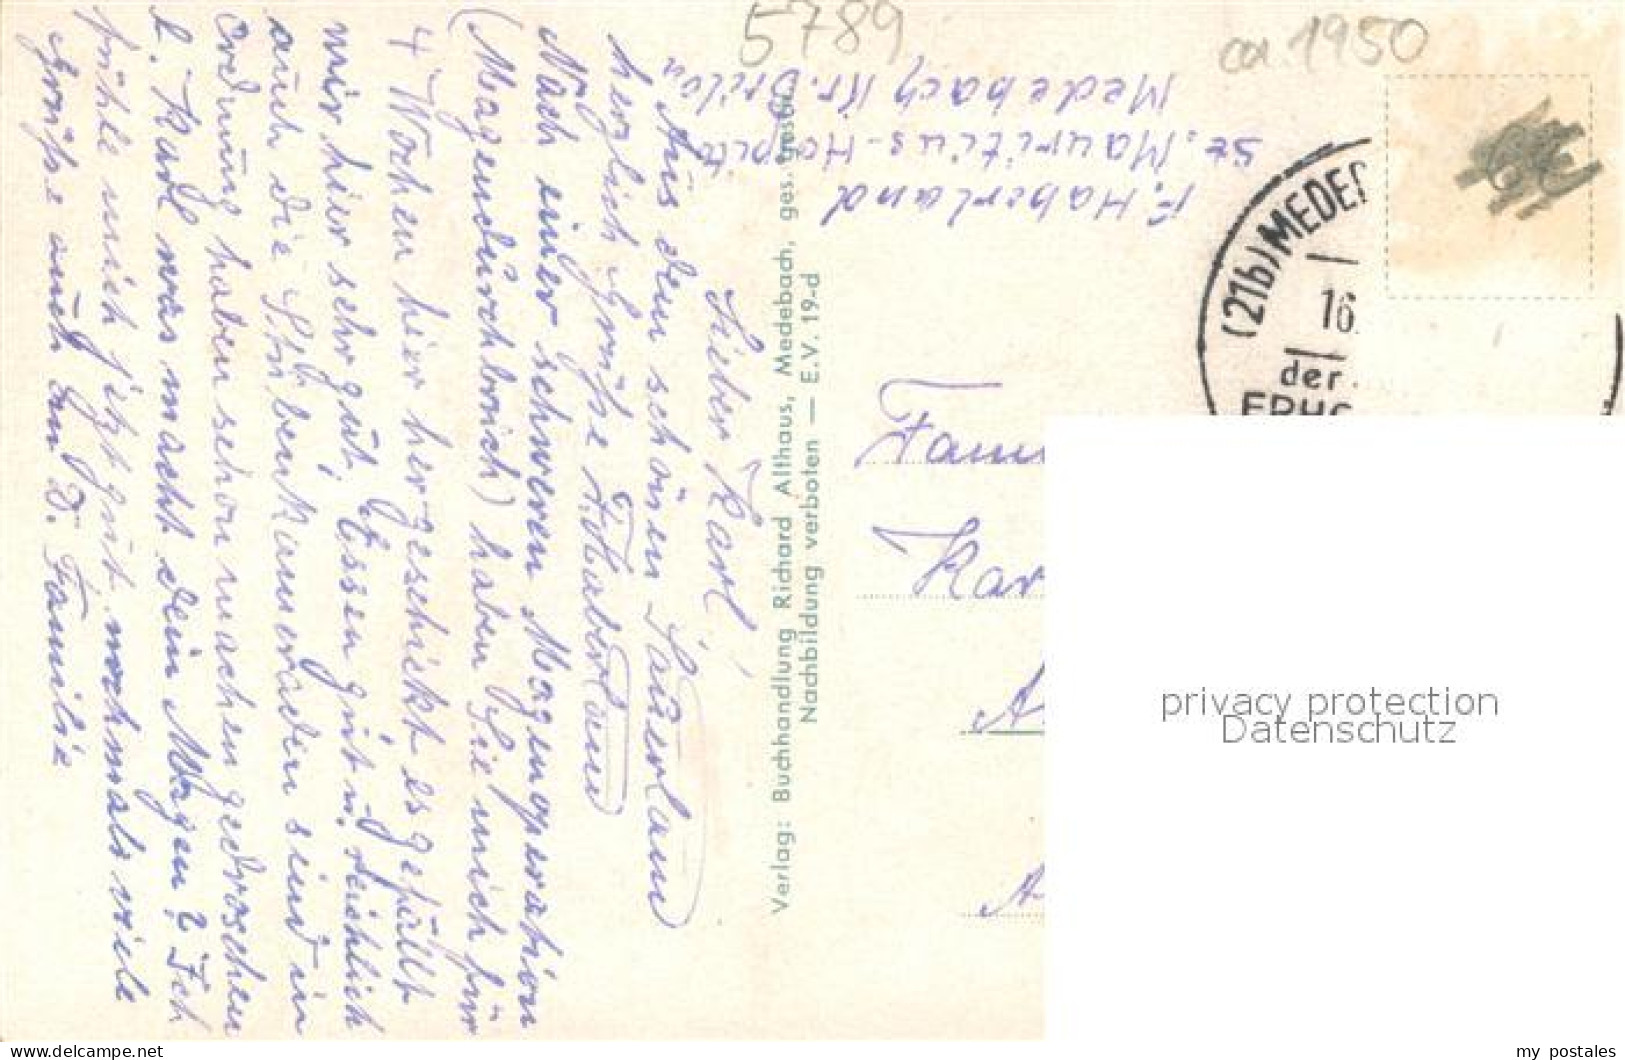 5789
ca. 1950
F. Haberland
St. Mauritius-Hospital
Medebach Kr. Brilon
(21b) MEDEB
16.
der
ERHO
Lieber Karl!
Aus dem schönen Sauerland
herzlich Grüße F. Haberland
Nach einer schweren Magenoperation
(Magendurchbruch) haben Sie mich für
4 Wochen hier hergeschickt es gefällt
mir hier sehr gut, Essen gut u. reichlich
auch die Stubenkameraden sind in
Ordnung haben schon machen gedroschen
L. Karl was macht dein Magen? Ich
fühle mich jetzt gut, nochmals viele
Grüße auch an D. Familie
Verlag: Buchhandlung Richard Althaus, Medebach, ges. gesch.
Nachbildung verboten — E.V. 19-d
Fam
Kar
A
A
privacy protection
Datenschutz
delcampe.net
my postales